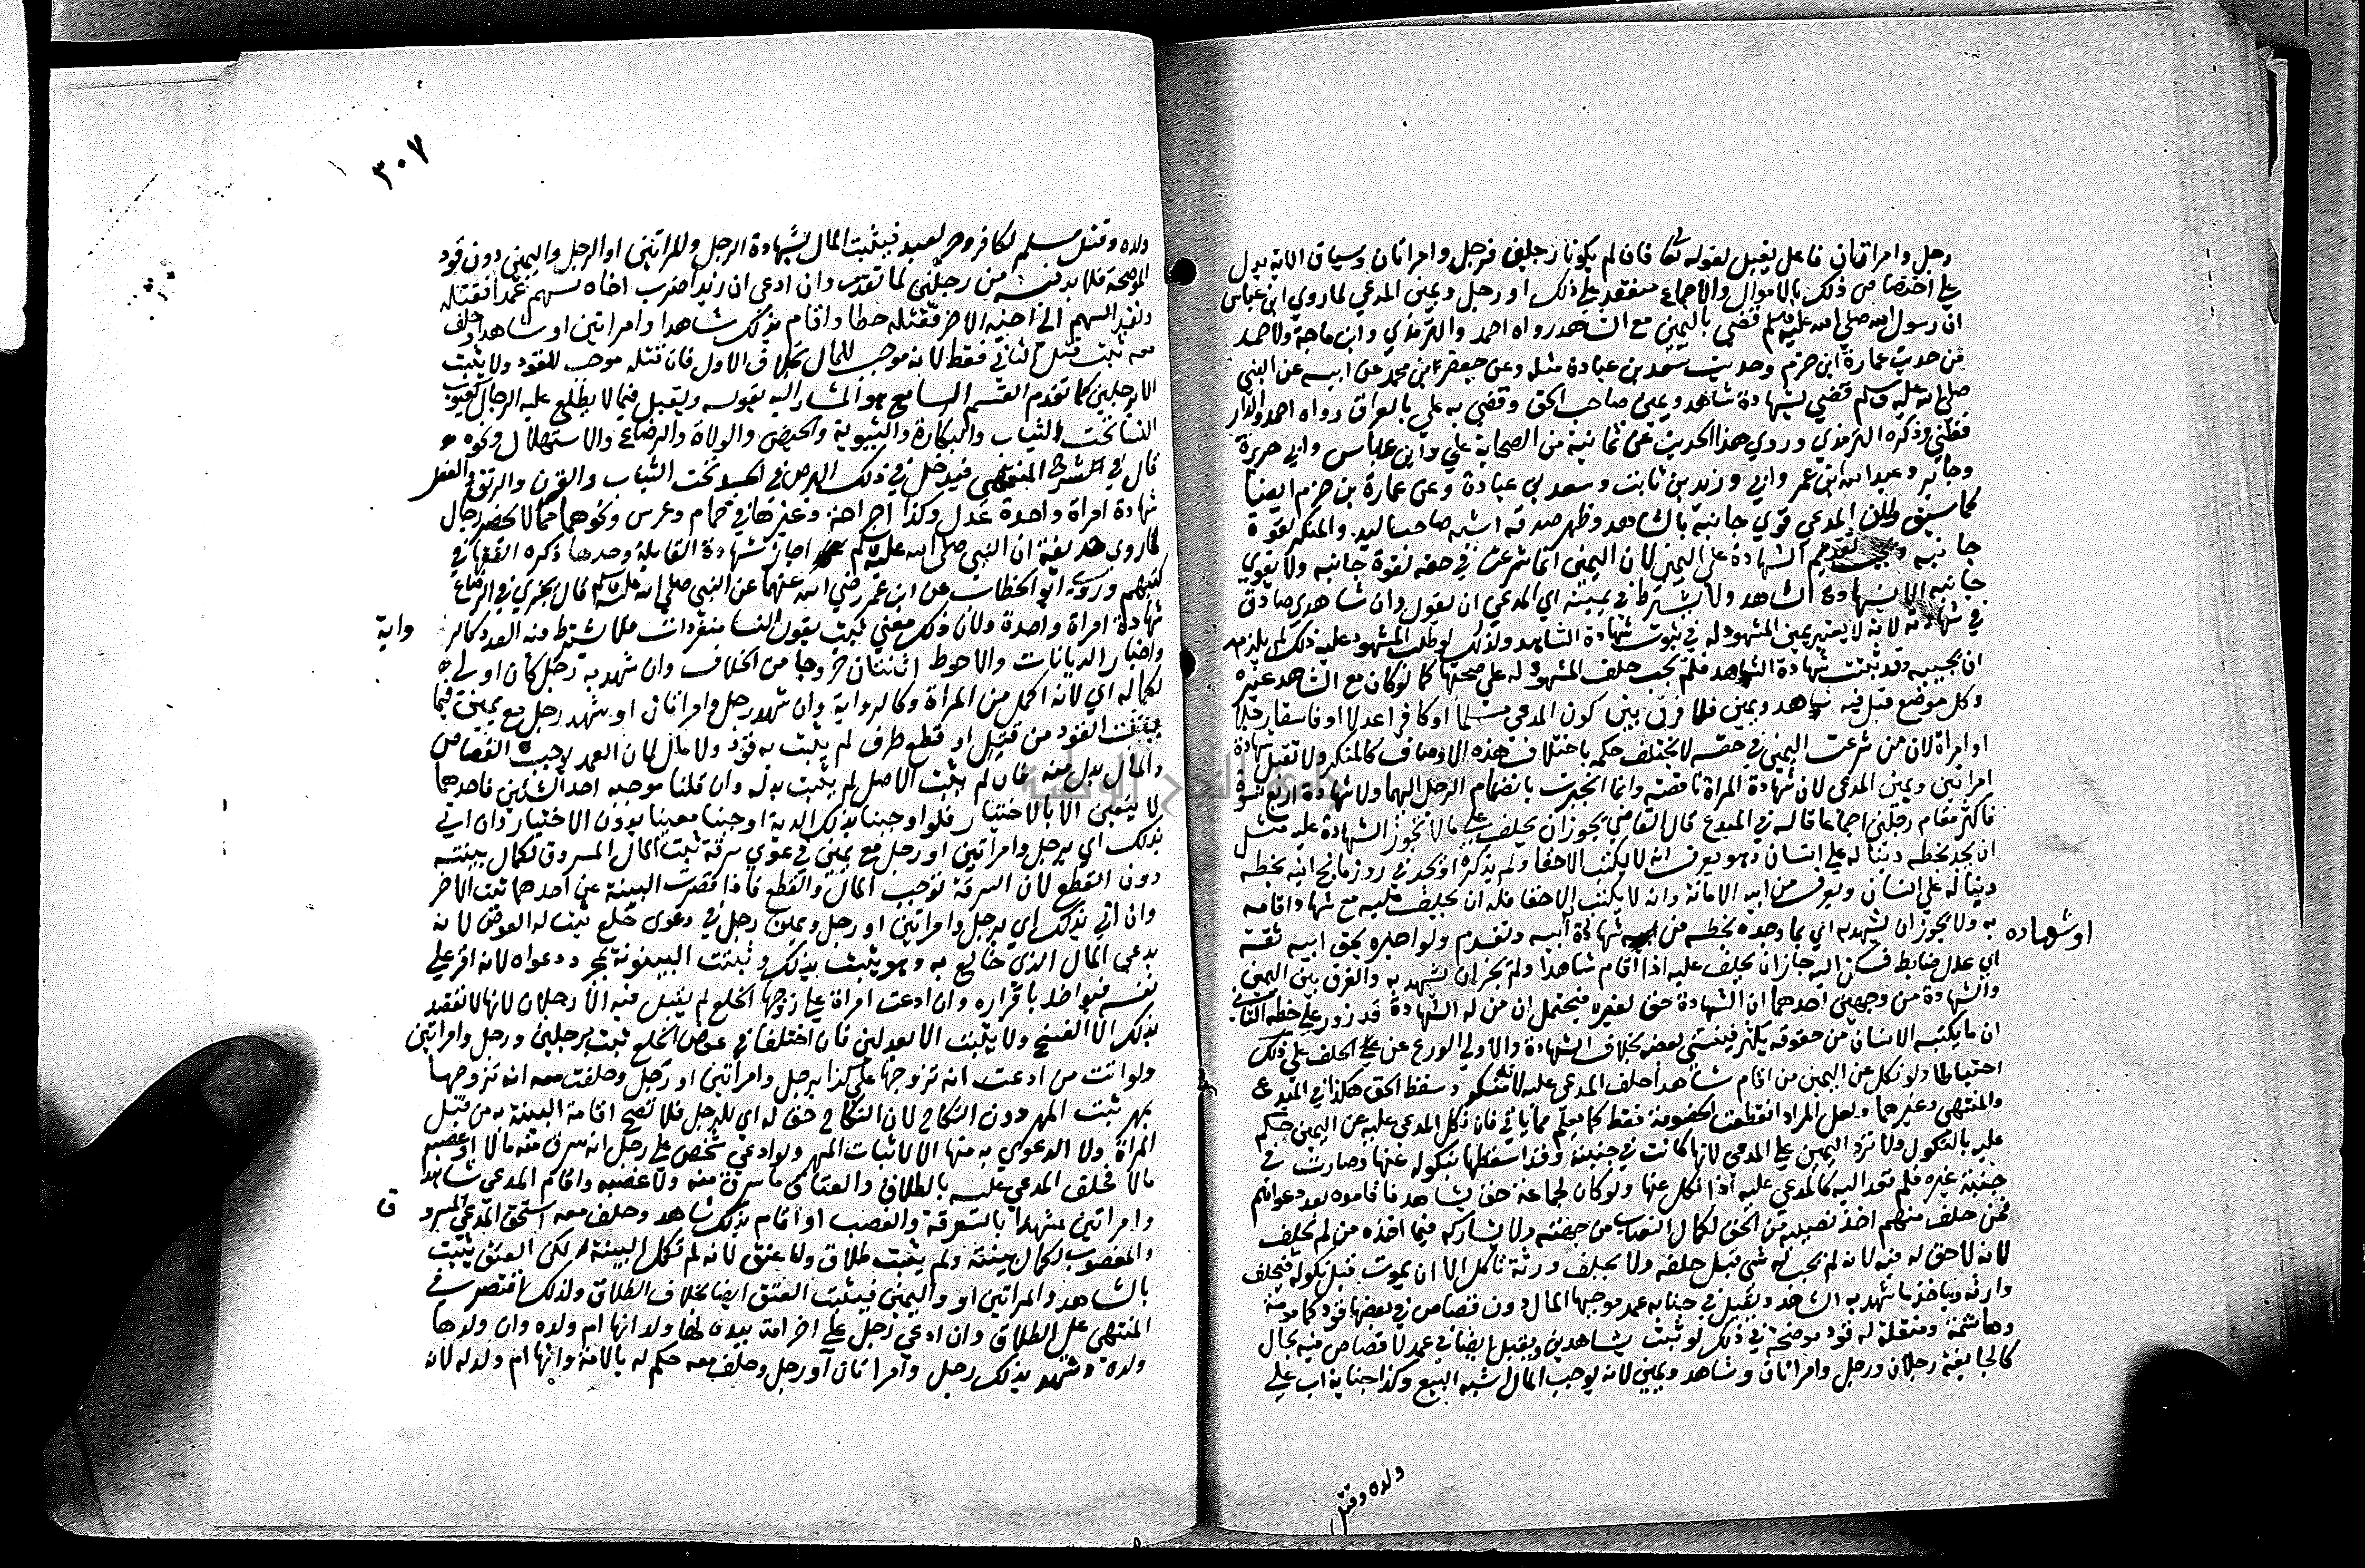 رجل وامراتان فاعل يقبل لقوله تعالى فان لم يكونا رجلين فرجل وامراتان وسياق الاية يدل
على اختصاص ذلك بالاموال والاجماع منعقد على ذلك او رجل ويمين المدعي لما روي ابن عباس
ان رسول الله صلي الله عليه وسلم قضي باليمين مع الشاهد رواه احمد والترمذي وابن ماجة ولاحمد
من حديث عمارة ابن حزم وحديث سعد بن عبادة مثله وعن جعفر بن محمد عن ابيه عن النبي
صلى الله عليه وسلم قضي بشهادة شاهد ويمين صاحب الحق وقضي به علي بالعراق رواه احمد والدار
قطني وذكره الترمذي وروي هذا الحديث عن ثمانية من الصحابة علي وابن عباس وابي هريرة
وجابر وعبد الله ابن عمر وابي وزيد بن ثابت وسعد بن عبادة وعن عمارة بن حزم ايضا
كما سبق ولان المدعي قوي جانبه بالشاهد وظهر صدقه اشبه صاحب اليد والمنكر لقوة
جانبه ويجب تقديم الشهادة على اليمين لان اليمين انما شرعت في حقه لقوة جانبه ولا يقوي
جانبه الا بشهادة الشاهد ولا يشترط في يمينه اي المدعي ان يقول وان شاهدي صادق
في شهادته لانه لا يعتبر يمين المشهود له في ثبوت شهادة الشاهد ولذلك لو طلب المشهود عليه ذلك لم يلزمه
ان يجيبه وقد ثبتت شهادة الشاهد فلم يجب حلف المشهود له على صحتها كما لو كان مع الشاهد غيره
وكل موضع قبل فيه شاهد ويمين فلا فرق بين كون المدعي مسلما او كافرا عدلا او فاسقا رجلا
او امراة لان من شرعت اليمين في حقه لا يختلف حكمه باختلاف هذه الاوصاف كالمنكر ولا تقبل شهادة
امراتين ويمين المدعي لان شهادة المراة ناقصة وانما انجبرت بانضمام الرجل اليهما ولا شهادة اربع نسوة
فاكثر مقام رجلين اجماعا قاله في المبدع قال القاضي يجوز ان يحلف على ما لا تجوز الشهادة عليه مثل
ان يجد بخطه دينا له على انسان وهو يعرف انه لا يكتب الا حقا ولم يذكره او يجد في روزمانج ابيه بخطه
دينا له علي انسان ويعرف من ابيه الامانة وانه لا يكتب الا حقا فله ان يحلف عليه مع شهادة اقامه
به ولا يجوز ان يشهد به اي بما وجده بخطه من شهادة ابيه وتقدم ولو اخبره بحق ابيه ثقة
او شهاده
اي عدل ضابط فسكن اليه جاز ان يحلف عليه اذا اقام شاهدا ولم يجز ان يشهد به والفرق بين اليمين
والشهادة من وجهين احدهما ان الشهادة حق لغيره فيحتمل ان من له الشهادة قد زور على خطه الثاني
ان ما يكتبه الانسان من حقوقه يكثر فينسي بعضه بخلاف الشهادة والاولي الورع عن الحلف على ذلك
احتياطا ولو نكل عن اليمين من اقام شاهدا حلف المدعي عليه لانه منكر وسقط الحق هكذا في المبدع
والمنتهي وغيرهما ولعل المراد انقطعت الخصومة فقط كما يعلم مما ياتي فان نكل المدعي عليه عن اليمين حكم
عليه بالنكول ولا ترد اليمين علي المدعي لانها كانت في جنبته وقد اسقطها بنكوله عنها وصارت في
جنبة غيره فلم تعد اليه كالمدعي عليه اذا نكل عنها ولو كان لجماعة حق بشاهد فاقاموه بعد دعواهم
فمن حلف منهم اخذ نصيبه من الحق لكمال النصاب من جهته ولا يشاركه فيما اخذه من لم يحلف
لانه لا حق له فيه لانه لم يجب له شي قبل حلفه ولا يحلف ورثة ناكل الا ان يموت قبل نكوله فيحلف
وارثه وياخذ ما شهد به الشاهد ويقبل في جناية عمد موجبها المال دون قصاص في بعضها قود كمامومة
وهاشمة ومنقلة له قود موضحة في ذلك لو ثبت بشاهدين ويقبل ايضا في عمد لا قصاص فيه بحال
كالجايفة رجلان ورجل وامراتان وشاهد ويمين لانه يوجب المال اشبه البيع وكذا جناية اب على
ولده وقتل
٣٠٧
ولده وقتل مسلم لكافر وحر لعبد فيثبت المال بشهادة الرجل والمراتين او الرجل واليمين دون قود
الموضحة فلا بد فيه من رجلين لما تقدم وان ادعي ان زيدا ضرب اخاه بسهم عمدا فقتله
ونفذ السهم الى اخيه الاخر فقتله خطا واقام بذلك شاهدا وامراتين او شاهدا وحلف
معه ثبت قتل الثاني فقط لانه موجب للمال بخلاف الاول فان قتله موجب للقود ولا يثبت
الا برجلين كما تقدم القسم السابع هو المشار اليه بقوله ويقبل فيما لا يطلع عليه الرجال كعيوب
النسا تحت الثياب والبكارة والثيوبة والحيض والولادة والرضاع والاستهلال ونحوه
قال في شرح المنتهي فيدخل في ذلك البرص في الجسد تحت الثياب والقرن والرتق والعفل
شهادة امراة واحدة عدل وكذا جراحة وغيرها في حمام وعرس ونحوهما مما لا يحضره رجال
لما روي حذيفة ان النبي صلى الله عليه وسلم اجاز شهادة القابلة وحدها ذكره الفقها في
كتبهم وروى ابو الخطاب عن ابن عمر رضي الله عنهما عن النبي صلى الله عليه وسلم قال يجزي في الرضاع
شهادة امراة واحدة ولان ذلك معني يثبت بقول النسا منفردات فلا يشترط فيه العدد كالر
واية
واخبار الديانات والاحوط اثنتان خروجا من الخلاف وان شهد به رجل كان اولى
لكماله اي لانه اكمل من المراة وكالرواية وان شهد رجل وامراتان او شهد رجل مع يمين فيما
يثبت القود من قتل او قطع طرف لم يثبت به قود ولا مال لان العمد يوجب القصاص
والمال بدل منه فان لم يثبت الاصل لم يثبت بدله وان قلنا موجبه احد الشيئين فاحدهما
لا يتعين الا بالاختيار فلو اوجبنا بذلك الدية اوجبنا معينا بدون الاختيار وان اتي
بذلك اي برجل وامراتين او رجل مع يمين في دعوي سرقة ثبت المال المسروق لكمال بينته
دون القطع لان السرقة توجب المال والقطع فاذا قصرت البينة عن احدهما ثبت الاخر
وان اتي بذلك اي برجل وامراتين او رجل ويمين رجل في دعوى خلع ثبت له العوض لانه
يدعي المال الذي خالع به وهو يثبت بذلك وتثبت البينونة بمجرد دعواه لانه اقر على
نفسه فيواخذ باقراره وان ادعت امراة على زوجها الخلع لم يقبل فيه الا رجلان لانها لا تقصد
بذلك الا الفسخ ولا يثبت الا بعدلين فان اختلفا في عوض الخلع ثبت برجلين ورجل وامراتين
ولو اتت من ادعت انه تزوجها على كذا برجل وامراتين او رجل وحلفت معه انه تزوجها
بمهر ثبت المهر دون النكاح لان النكاح حق له اي للرجل فلا تصح اقامة البينة به من قبل
المراة ولا الدعوي به منها الا لاثبات المهر ولو ادعي شخص على رجل انه سرق منه مالا او غصبه
مالا فحلف المدعي عليه بالطلاق والعتاق ما سرق منه ولا غصبه واقام المدعي شاهدا
وامراتين شهدا بالسرقة والغصب او اقام بذلك شاهد وحلف معه استحق المدعي المسرو
ق
والمغصوب لكمال بينته ولم يثبت طلاق ولا عتق لانه لم تكمل البينة لكن العتق يثبت
بالشاهد والمراتين او واليمين فيثبت العتق ايضا بخلاف الطلاق ولذلك اقتصر في
المنتهي على الطلاق وان ادعي رجل على اخر امة بيده لها ولد انها ام ولده وان ولدها
ولده وشهد بذلك رجل وامراتان او رجل وحلف معه حكم له بالامة وانها ام ولد له لانه